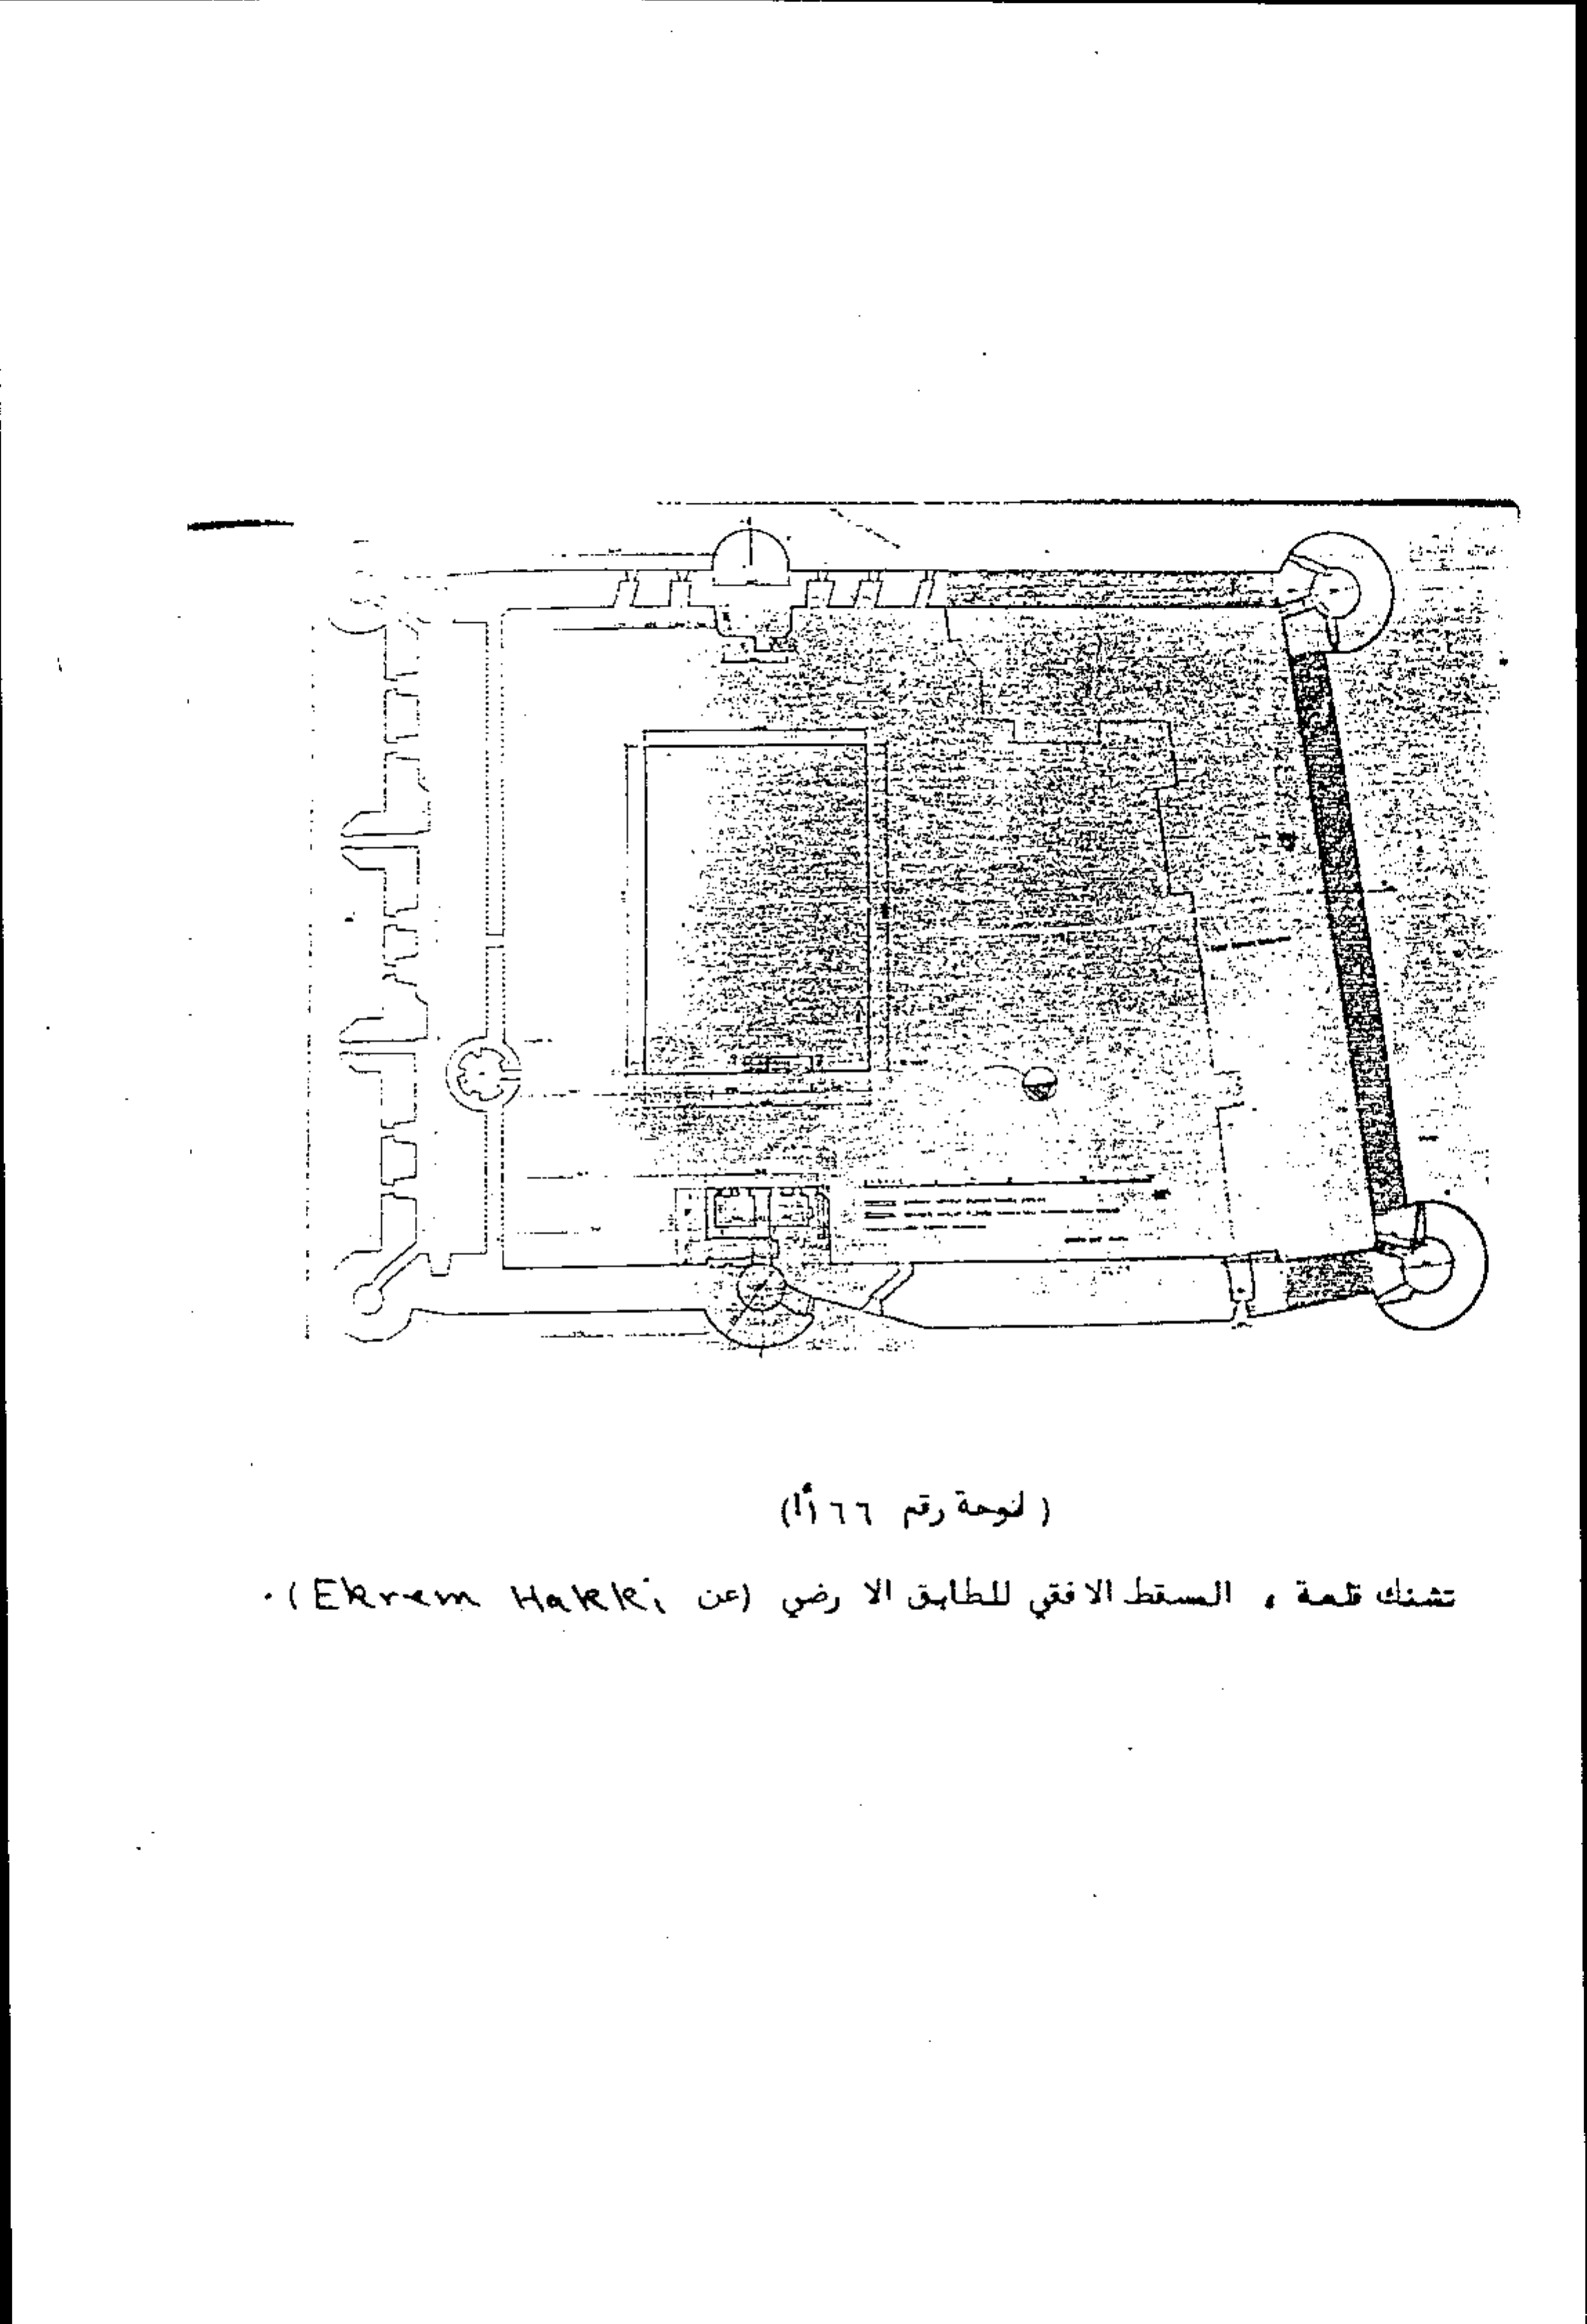 ( لوحة رقم ٦٦ أ )
تشنك قلعة ، المسقط الافقي للطابق الا رضي (عن Ekrem Hakki) .